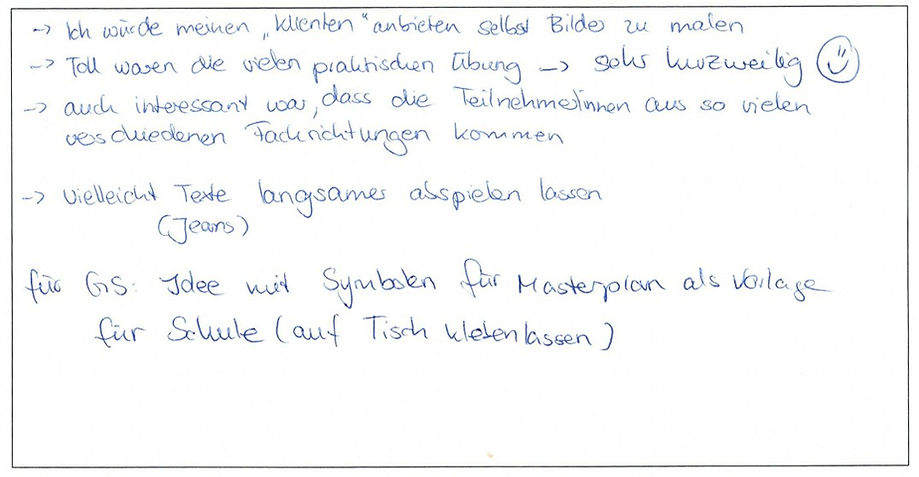 → Ich würde meinen „Klienten“ anbieten selbst Bilder zu malen
→ Toll waren die vielen praktischen Übung → sehr kurzweilig ☺
→ auch interessant war, dass die Teilnehmerinnen aus so vielen
verschiedenen Fachrichtungen kommen
→ vielleicht Texte langsamer abspielen lassen
(Jeans)
für GS: Idee mit Symbolen für Masterplan als Vorlage
für Schule (auf Tisch kleben lassen)